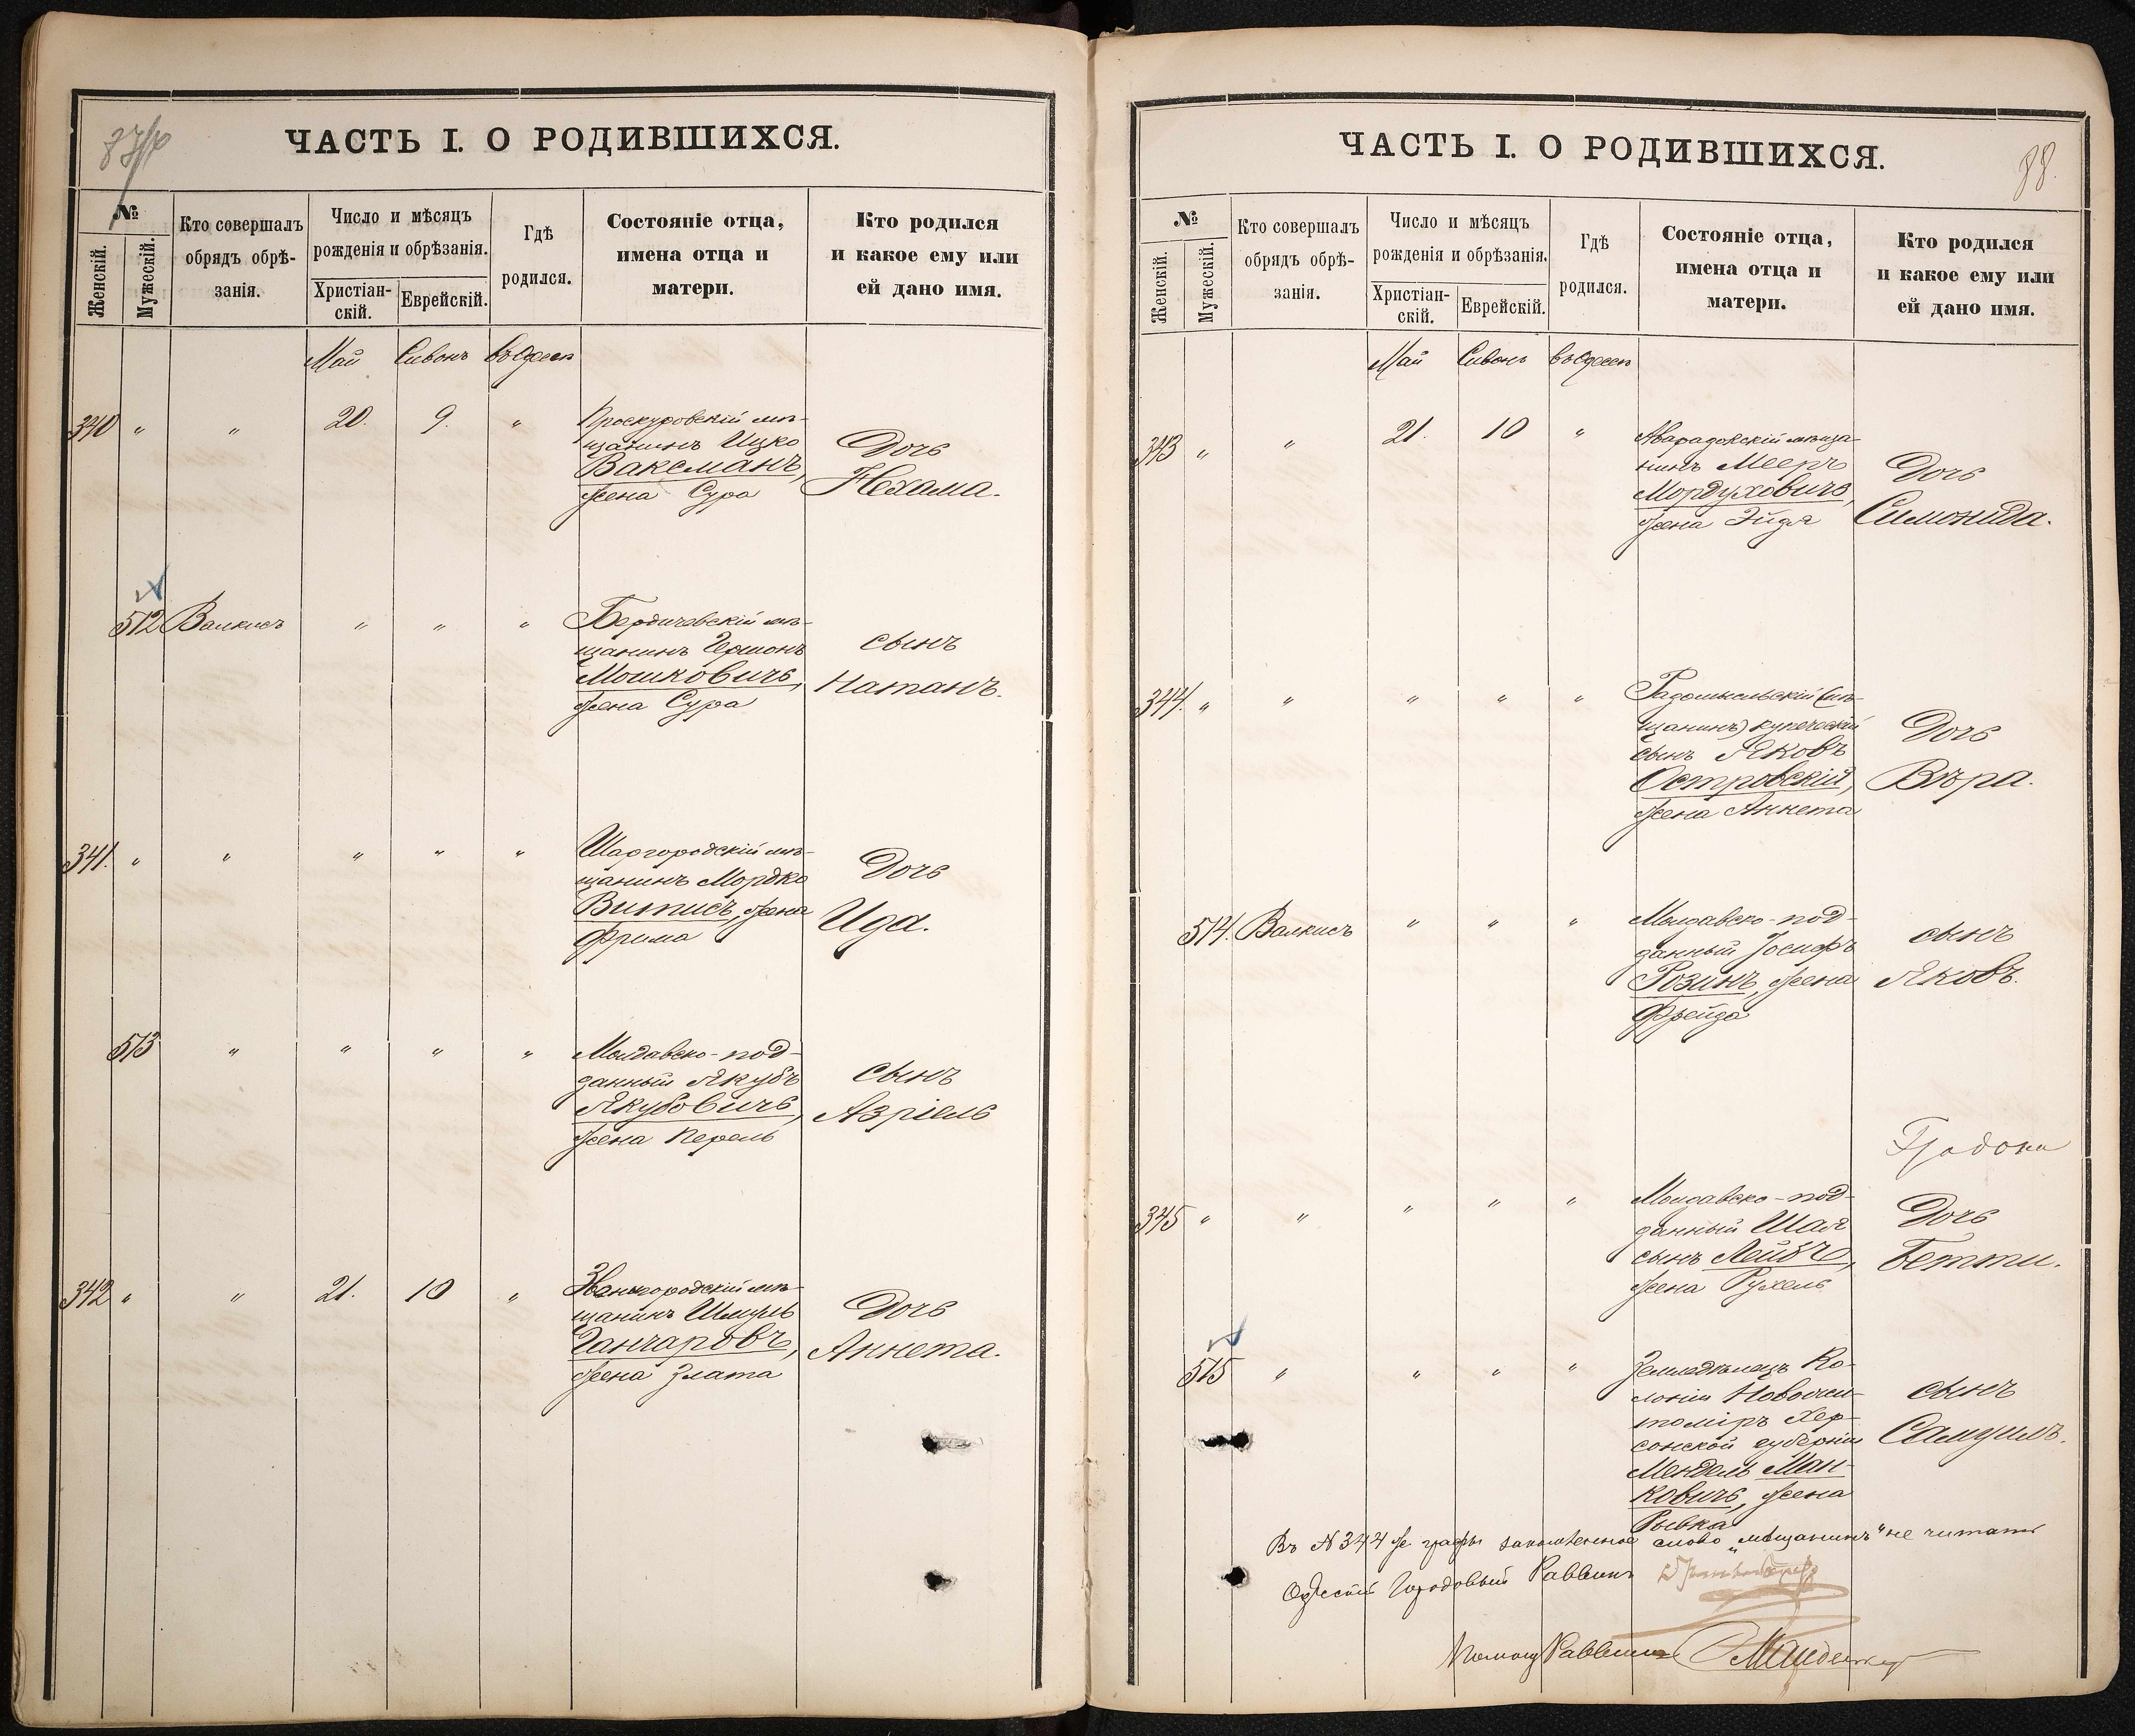 87/об
ЧАСТЬ I. О РОДИВШИХСЯ.
№
Женскій.
Мужескій.
Кто совершалъ
обрядъ обрѣ-
занія.
Число и мѣсяцъ
рожденія и обрѣзанія.
Христіан-
скій.
Еврейскій.
Гдѣ
родился.
Состояніе отца,
имена отца и
матери.
Кто родился
и какое ему или
ей дано имя.
Май Сивонъ въ Одессѣ
340 " " 20. 9. "
Проскуровскій мѣ-
щанинъ Ицко
Ваксманъ,
жена Сура
Дочь
Нехама.
512 Валкисъ " " "
Бердичевскій мѣ-
щанинъ Гершонъ
Мошковичъ,
жена Сура
сынъ
Натанъ.
341. " " " " "
Шаргородскій мѣ-
щанинъ Мордко
Витисъ, жена
Фрима
Дочь
Ида.
513 " " " "
Молдавско-под-
данный Якубъ
Якубовичъ,
жена Перель
сынъ
Азріель
342 " " 21. 10 "
Звенигородскій мѣ-
щанинъ Шмуль
Ганчаровъ,
жена Злата
Дочь
Аннета.
88.
ЧАСТЬ I. О РОДИВШИХСЯ.
№
Женскій.
Мужескій.
Кто совершалъ
обрядъ обрѣ-
занія.
Число и мѣсяцъ
рожденія и обрѣзанія.
Христіан-
скій.
Еврейскій.
Гдѣ
родился.
Состояніе отца,
имена отца и
матери.
Кто родился
и какое ему или
ей дано имя.
Май Сивонъ въ Одессѣ
343 " " 21. 10 "
мѣща-
нинъ Мееръ
Мордуховичъ,
жена Эйдля
Дочь
Симонида.
344. " " " " "
Радомысльскій (мѣ-
щанинъ) купеческій
сынъ Яковъ
Островскій,
жена Аннета
Дочь
Вѣра.
514. Валкисъ " " "
Молдавско-под-
данный Іосифъ
Розинъ, жена
Фрейда
сынъ
Яковъ.
345 " " " " "
Молдавско-под-
данный Шая
сынъ Лейбъ,
жена Рухель
Дочь
Бетти.
515 " " " "
Земледѣлецъ Ко-
лоніи Новожи-
томіръ Хер-
сонской губерніи
Мендель Ман-
ковичъ, жена
Рывка
сынъ
Самуилъ.
Въ № 344 ж. графы слово „мѣщанинъ" не читать
Одесскій Городовый Раввинъ
Помощ Раввина